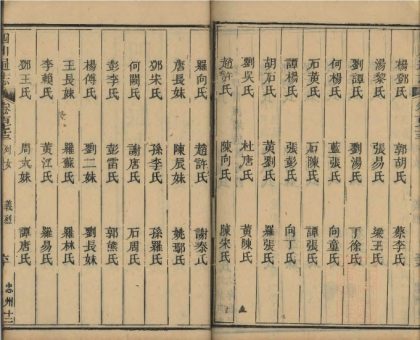 楊鄧氏 蔡李氏
湯黎氏 張易氏 梁王氏
劉譚氏 劉湯氏 丁徐氏
何楊氏 藍張氏 向童氏
石黃氏 石陳氏 譚張氏
譚楊氏 張彭氏 向丁氏
胡石氏 黃劉氏 羅張氏
劉吳氏 杜唐氏 黃陳氏
趙許氏 陳向氏 陳宋氏
羅向氏 趙許氏 謝泰氏
唐長妹 陳辰妹 姚鄢氏
鄧朱氏 孫李氏 孫羅氏
何闕氏 唐氏 石周氏
彭李氏 彭雷氏 郭熊氏
楊傅氏 劉二妹 劉長妹
王長妹 羅蘇氏 羅林氏
李賴氏 黃江氏 羅易氏
鄧王氏 周九妹 譚唐氏
四川通志 列女 義烈 忠州十二